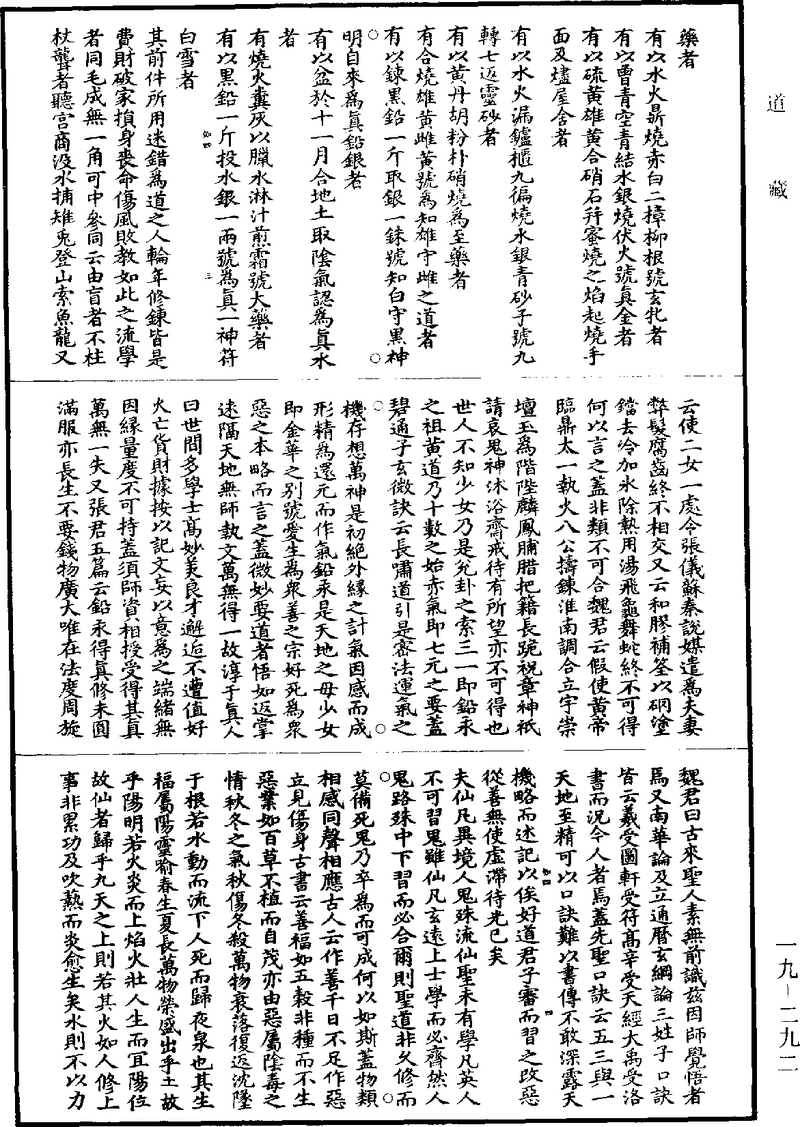 道藏
藥者
有以水火鼎燒赤白二樟柳根號玄牝者
有以曾青空青結水銀燒伏火號真金者
有以硫黃雄黃合硝石幷蜜燒之焰起燒手
面及燼屋舍者
有以水火漏鑪櫃九徧燒水銀青砂子號九
轉七返靈砂者
有以黃丹胡粉朴硝燒爲至藥者
有合燒雄黃雌黃號爲知雄守雌之道者
有以鍊黑鉛一斤取銀一銖號知白守黑神
明自來爲真鉛銀者
有以盆於十一月合地土取陰氣認爲真水
者
有燒火糞灰以臘水淋汁煎霜號大藥者
有以黑鉛一斤投水銀一兩號爲真一神符
白雪者
其前件所用迷錯爲道之人輪年修鍊皆是
費財破家損身喪命傷風敗教如此之流學
者同毛成無一角可中參同云由盲者不柱
杖聾者聽宮商没水捕雉兎登山索魚龍又
云使二女一處令張儀蘇秦說媒遣爲夫妻
弊髮腐齒終不相交又云和膠補釜以硇塗
鐺去冷加氷除熱用湯飛龜舞蛇終不可得
何以言之蓋非類不可合魏君云假使黃帝
臨鼎太一執火八公擣鍊淮南調合立宇崇
壇玉爲階陛麟鳳脯腊把籍長跪祝章神祇
請哀鬼神沐浴齋戒待有所望亦不可得也
世人不知少女乃是兌卦之索三一即鉛汞
之祖黃道乃十數之始赤氣即七元之要蓋
碧通子玄微訣云長嘯道引是喬法運氣之
機存想萬神是初絕外緣之計氣因感而成
形精爲還元而作氣鉛汞是天地之母少女
即金華之别號愛生爲衆善之宗好死爲衆
惡之本略而言之蓋微妙要道者悟如返掌
迷隔天地無師執文萬無得一故淳于真人
曰世間多學士高妙美良才邂逅不遭值好
火亡貨財據按以記文妄以意爲之端緒無
因緣量度不可持蓋須師資相授受得其真
萬無一失又張君五篇云鉛汞得真修未圓
滿服亦長生不要錢物廣大唯在法度周旋
魏君曰古來聖人素無前識茲因師覺悟者
焉又南華論及立通曆玄綱論三姓子口訣
皆云羲受圖軒受符高辛受天經大禹受洛
書而況今人者焉蓋先聖口訣云五三與一
天地至精可以口訣難以書傳不敢深露天
機略而述記以俟好道君子審而習之改惡
從善無使虛滯待光已矣
夫仙凡異境人鬼殊流仙聖未有學凡英人
不可習鬼雖仙凡玄遠上士學而必齊然人
鬼路殊中下習而必合爾則聖道非久修而
莫備死鬼乃卒爲而可成何以如斯蓋物類
相感同聲相應古人云作善千日不足作惡
立見傷身古書云善福如五穀非種而不生
惡業如百草不植而自茂亦由惡屬陰毒之
情秋冬之氣秋傷冬殺萬物衰落復返沈墜
于根若水動而流下人死而歸夜泉也其生
福屬陽靈喻春生夏長萬物榮盛出乎土故
乎陽明若火炎而上焰火壯人生而宜陽位
故仙者歸乎九天之上則若其火如人修上
事非累功及吹熱而炎愈生矣水則不以力
一九-二九二
三